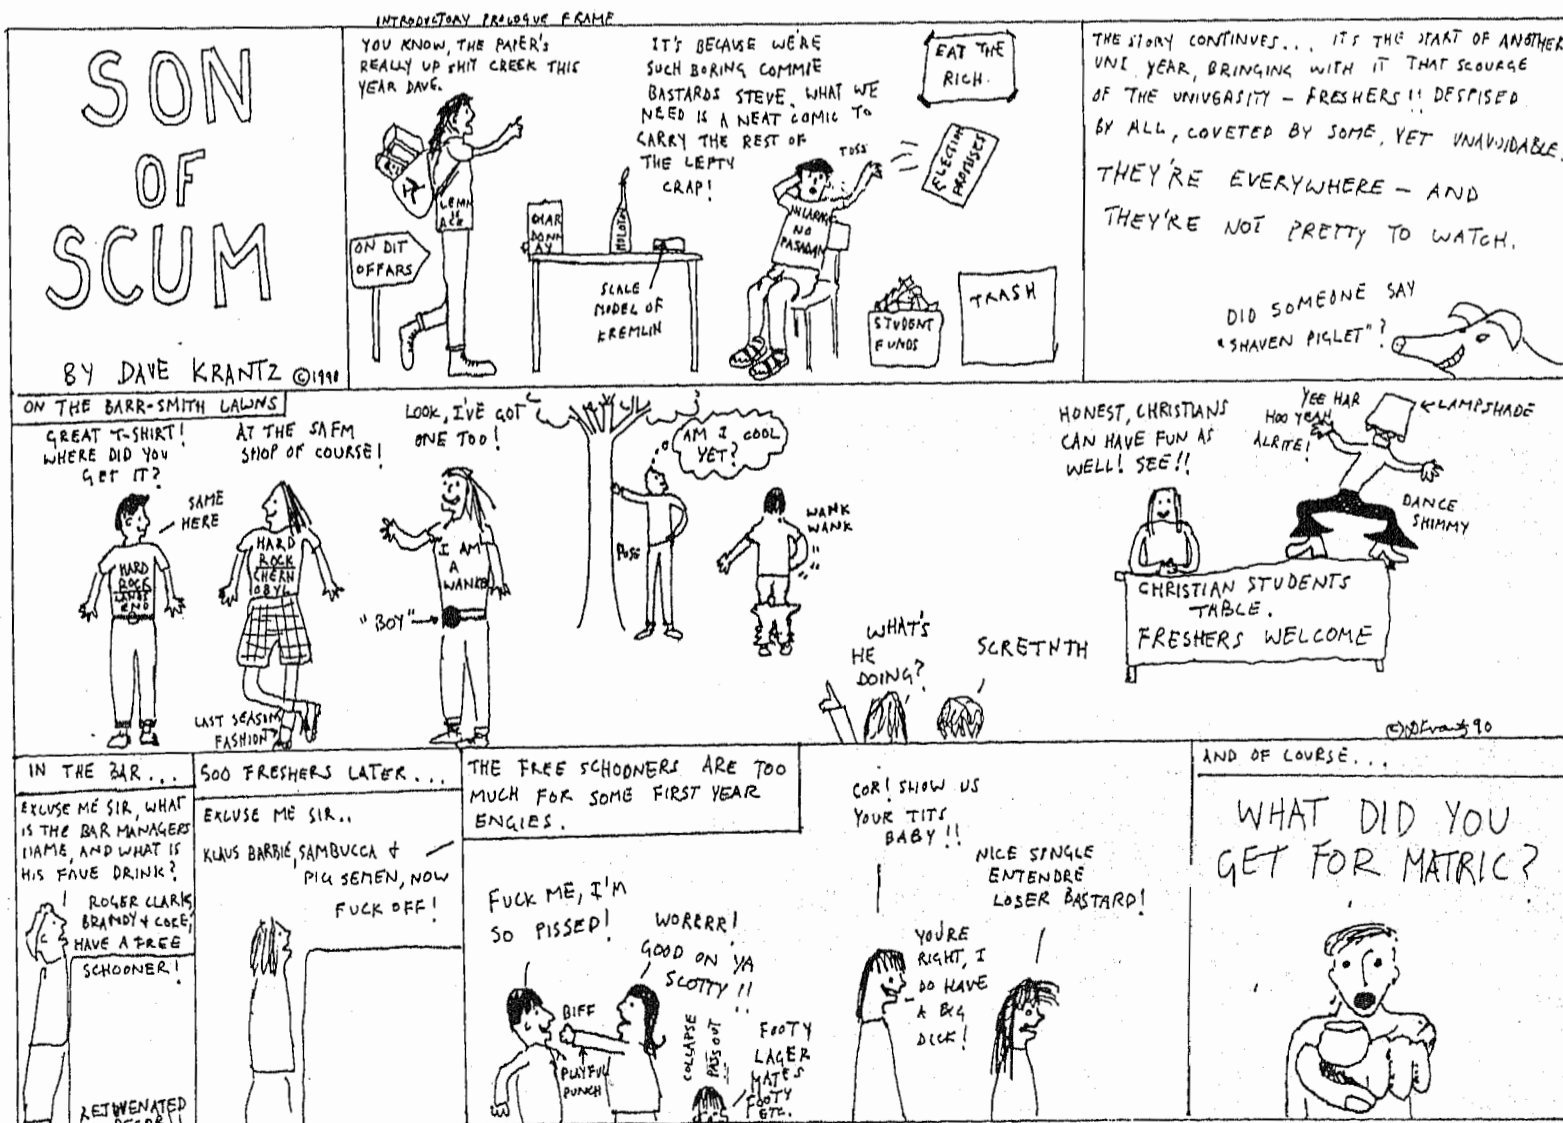 INTRODUCTORY PROLOGUE FRAME
SON
OF
SCUM
BY DAVE KRANTZ ©1990
YOU KNOW, THE PAPER'S
REALLY UP SHIT CREEK THIS
YEAR DAVE.
IT'S BECAUSE WE'RE
SUCH BORING COMMIE
BASTARDS STEVE. WHAT WE
NEED IS A NEAT COMIC TO
CARRY THE REST OF
THE LEFTY
CRAP!
EAT THE
RICH.
TOSS
ELECTION
PROMISES
LENIN
IS
ACE
ON DIT
OFFARS
CHAR
DONN
AY
MOLOTOV
SCALE
MODEL OF
KREMLIN
NO
PASADAN
STUDENT
FUNDS
TRASH
THE STORY CONTINUES... ITS THE START OF ANOTHER
UNI YEAR, BRINGING WITH IT THAT SCOURGE
OF THE UNIVERSITY – FRESHERS!! DESPISED
BY ALL, COVETED BY SOME, YET UNAVOIDABLE.
THEY'RE EVERYWHERE – AND
THEY'RE NOT PRETTY TO WATCH.
DID SOMEONE SAY
"SHAVEN PIGLET"?
ON THE BARR-SMITH LAWNS
GREAT T-SHIRT!
WHERE DID YOU
GET IT?
SAME
HERE
HARD
ROCK
AT THE SAFM
SHOP OF COURSE!
HARD
ROCK
CHERN
OBYL
LAST SEASON
FASHION
LOOK, I'VE GOT
ONE TOO!
I AM
A
WANKER
"BOY"
AM I COOL
YET?
POSE
WANK
WANK
WHAT'S
HE
DOING?
SCRETNTH
HONEST, CHRISTIANS
CAN HAVE FUN AS
WELL! SEE!!
YEE HAR
HOO YEAH
ALRITE!
LAMPSHADE
DANCE
SHIMMY
CHRISTIAN STUDENTS
TABLE.
FRESHERS WELCOME
(C) DKrantz 90
IN THE BAR...
EXCUSE ME SIR, WHAT
IS THE BAR MANAGERS
NAME, AND WHAT IS
HIS FAVE DRINK?
ROGER CLARK,
BRANDY & COKE,
HAVE A FREE
SCHOONER!
REJUVENATED
500 FRESHERS LATER...
EXCUSE ME SIR..
KLAUS BARBIE, SAMBUCCA &
PIG SEMEN, NOW
FUCK OFF!
THE FREE SCHOONERS ARE TOO
MUCH FOR SOME FIRST YEAR
ENGIES.
FUCK ME, I'M
SO PISSED!
WORRRR!
GOOD ON YA
SCOTTY!!
BIFF
PLAYFUL
PUNCH
COLLAPSE
PASS OUT
FOOTY
LAGER
MATES
FOOTY
ETC.
COR! SHOW US
YOUR TITS
BABY!!
NICE SINGLE
ENTENDRE
LOSER BASTARD!
YOU'RE
RIGHT, I
DO HAVE
A BIG
DICK!
AND OF COURSE...
WHAT DID YOU
GET FOR MATRIC?